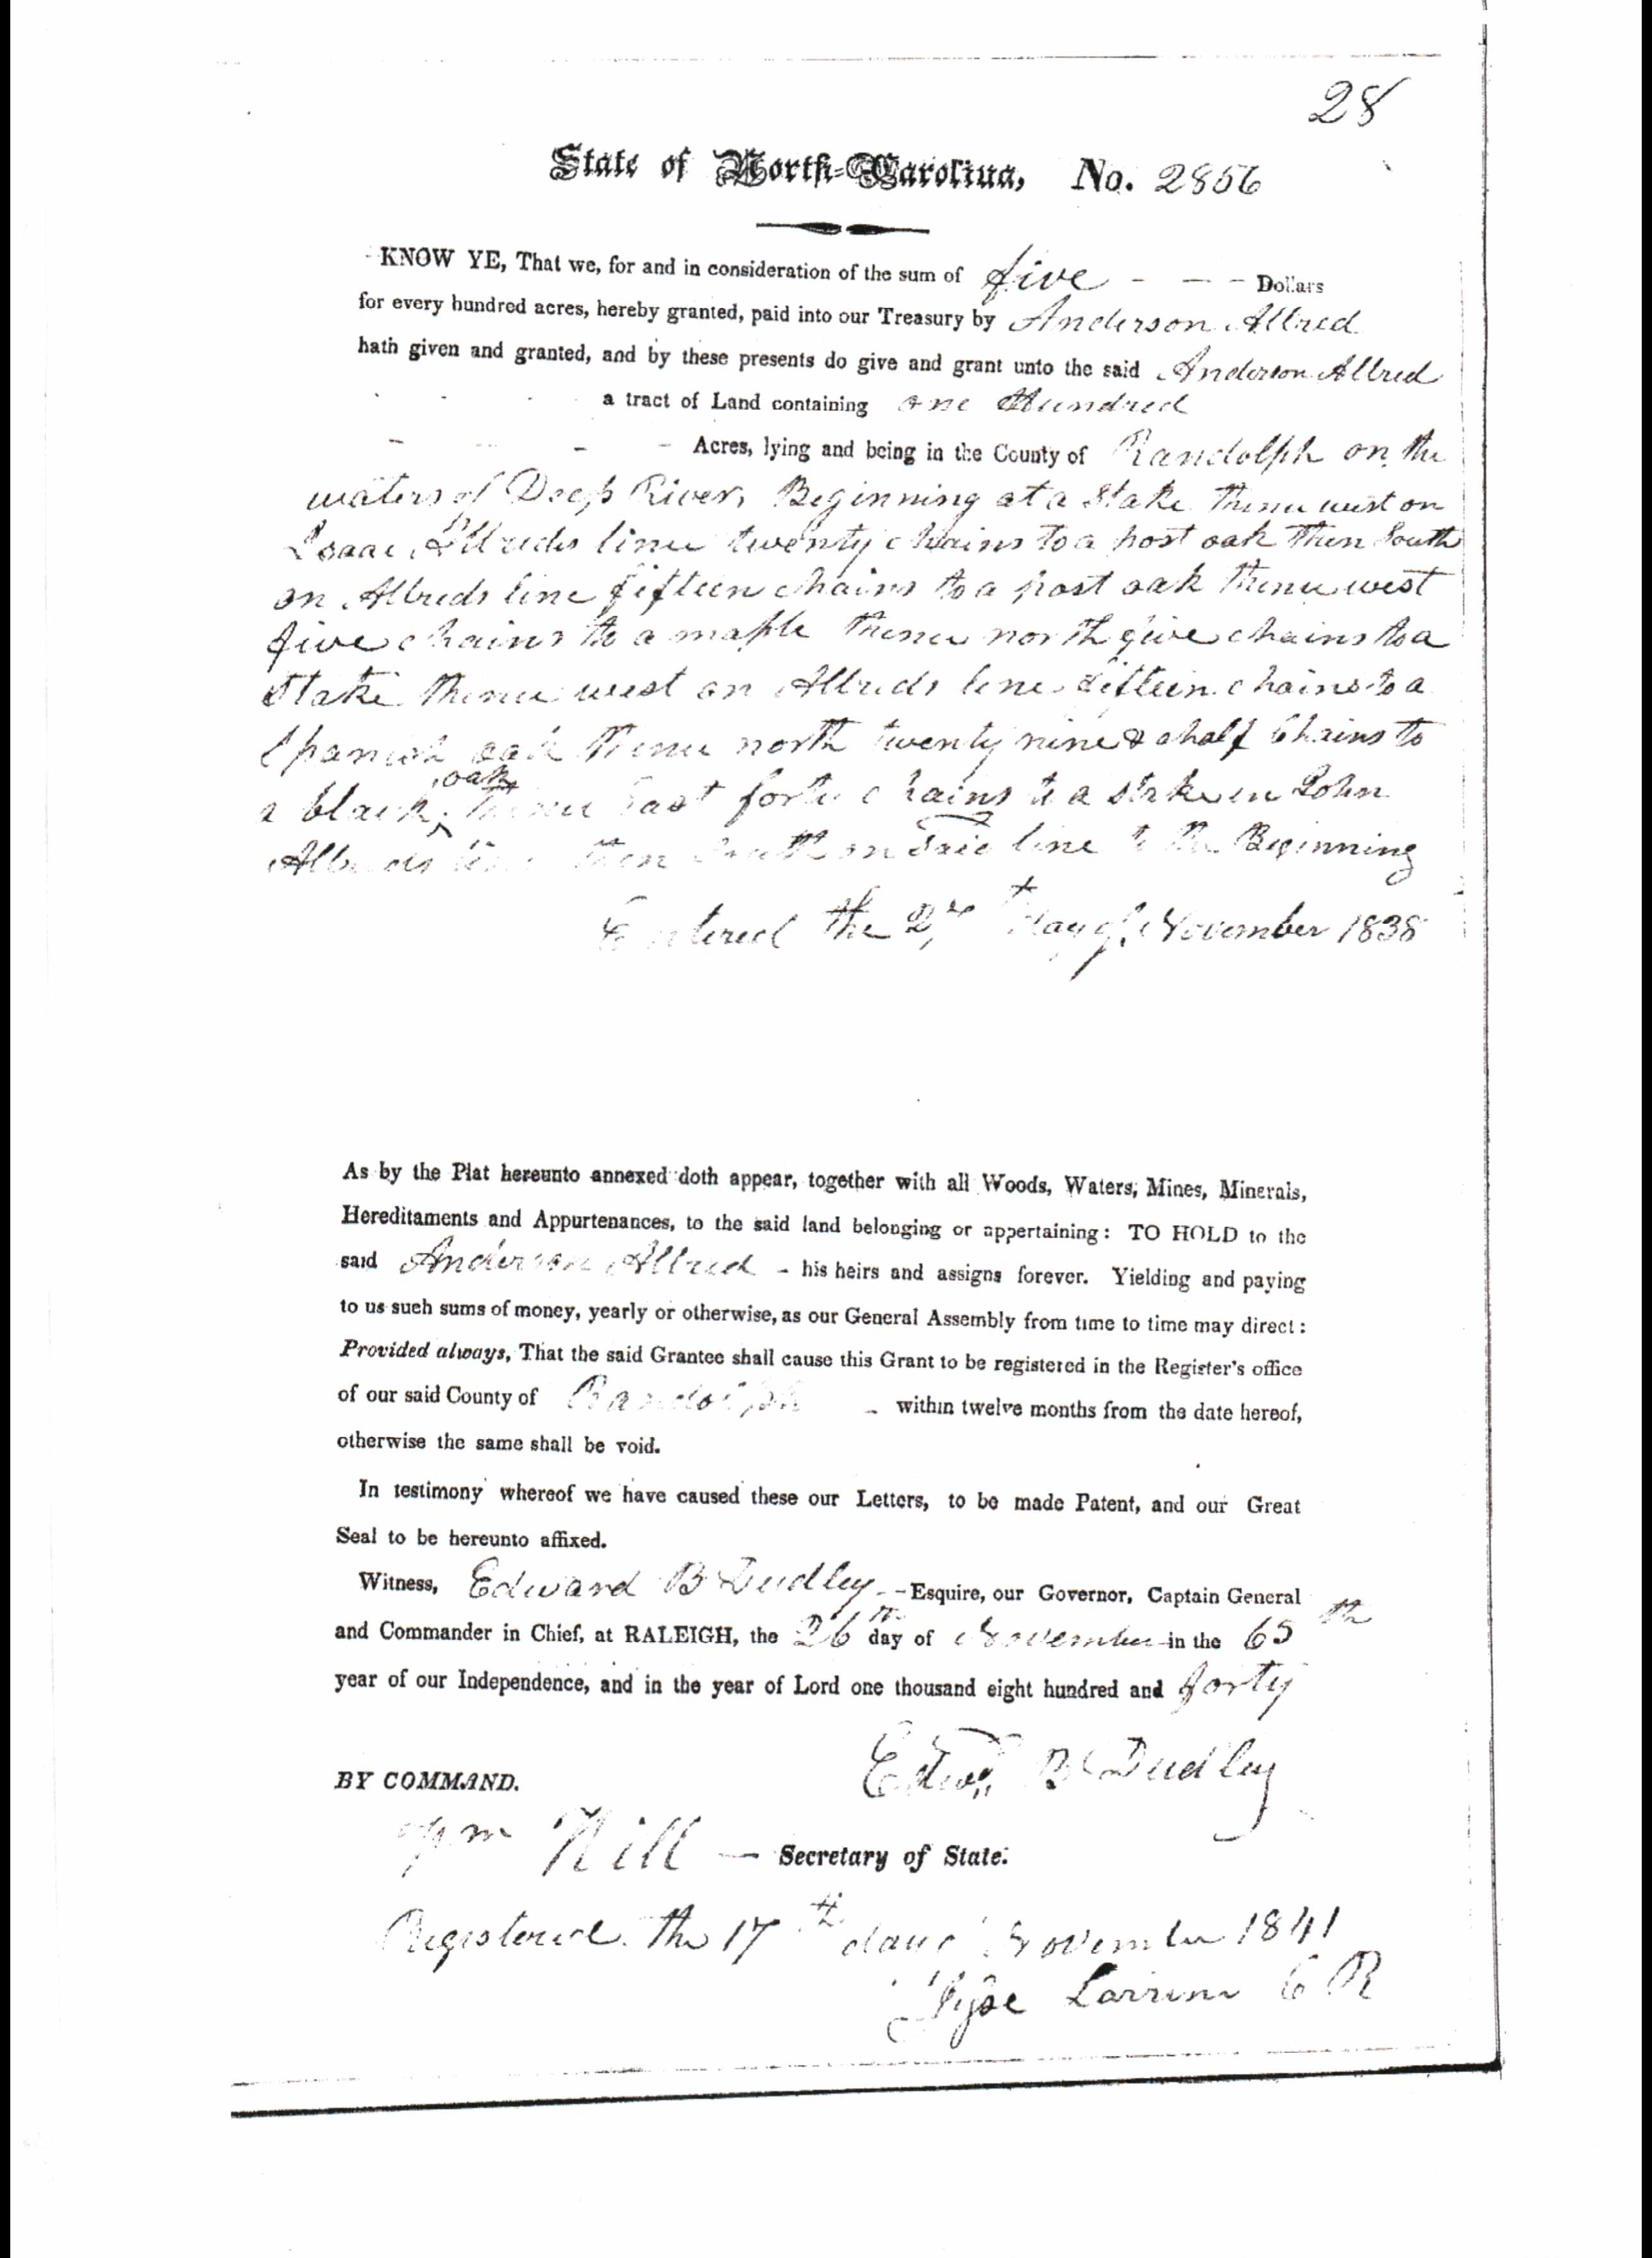 28
State of North-Carolina, No. 2856
KNOW YE, That we, for and in consideration of the sum of five - - - Dollars
for every hundred acres, hereby granted, paid into our Treasury by Anderson Allred
hath given and granted, and by these presents do give and grant unto the said Anderson Allred
a tract of Land containing one Hundred
- - - - Acres, lying and being in the County of Randolph on the
waters of Deep River, Beginning at a Stake thence west on
Isaac Allreds line twenty chains to a post oak then South
on Allreds line fifteen chains to a post oak thence west
five chains to a maple thence north five chains to a
Stake thence west on Allreds line fifteen chains to a
Spanish oak thence north twenty nine & a half Chains to
a black oak thence East forty chains to a stake in John
Allreds line then South on said line to the Beginning
Entered the day of November 1838
As by the Plat hereunto annexed doth appear, together with all Woods, Waters, Mines, Minerals,
Hereditaments and Appurtenances, to the said land belonging or appertaining: TO HOLD to the
said Anderson Allred - his heirs and assigns forever. Yielding and paying
to us such sums of money, yearly or otherwise, as our General Assembly from time to time may direct:
Provided always, That the said Grantee shall cause this Grant to be registered in the Register's office
of our said County of Randolph - within twelve months from the date hereof,
otherwise the same shall be void.
In testimony whereof we have caused these our Letters, to be made Patent, and our Great
Seal to be hereunto affixed.
Witness, Edward B Dudley - Esquire, our Governor, Captain General
and Commander in Chief, at RALEIGH, the 26th day of November in the 65th
year of our Independence, and in the year of Lord one thousand eight hundred and forty
Edwd B Dudley
BY COMMAND.
Wm Hill — Secretary of State.
Registered the 17th day of November 1841
C R